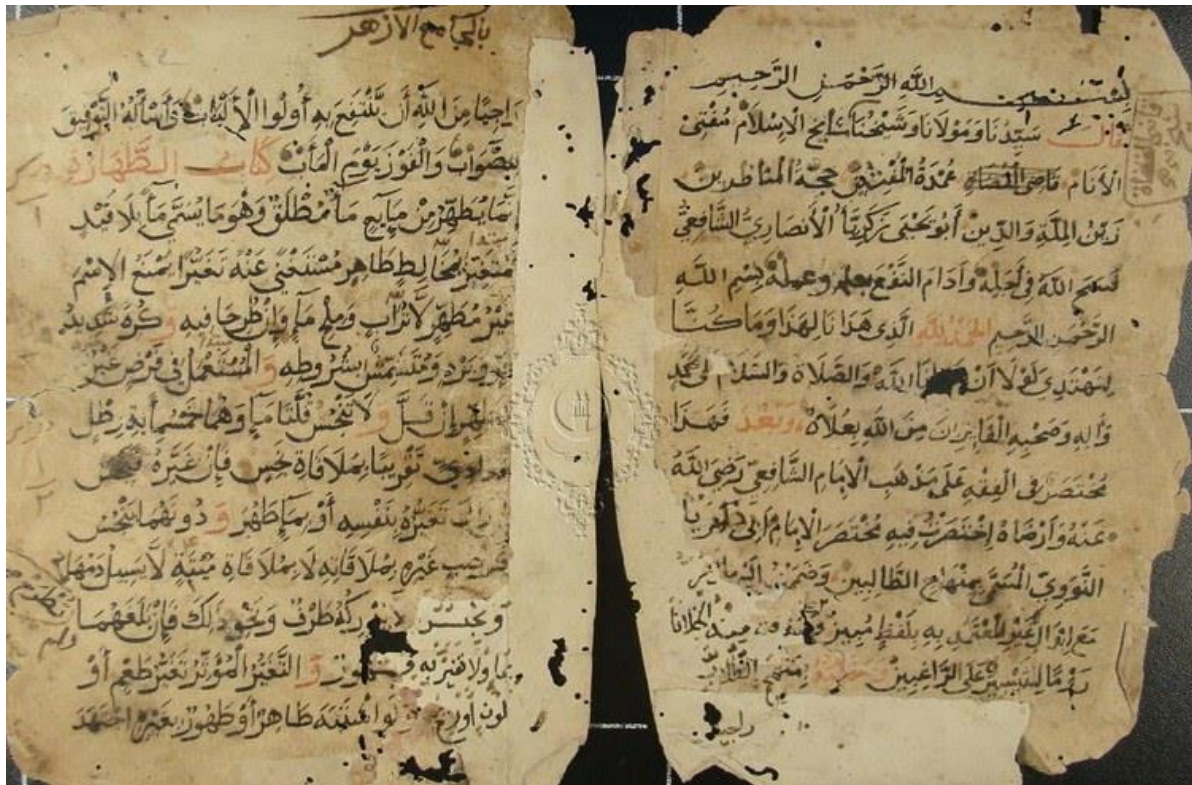 بسم الله الرحمن الرحيم
قال سيدنا ومولانا وشيخنا شيخ الإسلام مفتي
الأنام قاضي القضاة عمدة المفتين حجة المناظرين
زين الملة والدين أبو يحيى زكريا الأنصاري الشافعي
فسح الله في أجله وأدام النفع بعلمه وعمله بسم الله
الرحمن الرحيم الحمد لله الذي هدانا لهذا وما كنا
لنهتدي لولا أن الله والصلاة والسلام على محمد
وآله وصحبه الفائزين من الله بعلاه وبعد فهذا
مختصر في الفقه على مذهب الإمام الشافعي رضي الله
عنه وأرضاه اختصرت فيه مختصر الإمام أبي زكريا
النووي المسمى بمنهاج الطالبين وضممت إليه ما يسر
مع إبدال غير المعتمد به بلفظ مبين وحذفت منه الخلاف
روما لتيسيره على الراغبين وسميته بمنهج الطلاب
راجيا
بالجامع الأزهر
راجيا من الله أن ينتفع به أولوا الألباب وأسأله التوفيق
للصواب والفوز يوم المآب كتاب الطهارة
إنما يطهر من مايع ماء مطلق وهو ما يسمى ماء بلا قيد
فمتغير بمخالط طاهر مستغنى عنه تغيرا يمنع الإسم
غير مطهر لا تراب وملح ماء وإن طرحا فيه وكره شديد
حر وبرد ومتشمس بشروطه والمستعمل في فرض غير
مطهر إن قل ولا تنجس قلتا ماء وهما خمسماية رطل
بغدادي تقريبا بملاقاة نجس فإن غيره فنجس
فإن زال تغيره بنفسه أو بماء طهر ودونهما ينجس
كرطب غيره بملاقاته لا بملاقاة ميتة لا يسيل دمها
ونجس لا يدركه طرف ونحو ذلك فإن بلغهما
بماء ولا تغير به فطهور والتغير المؤثر تغير طعم أو
لون أو ريح ولو اشتبه طاهر أو طهور بغيره اجتهد